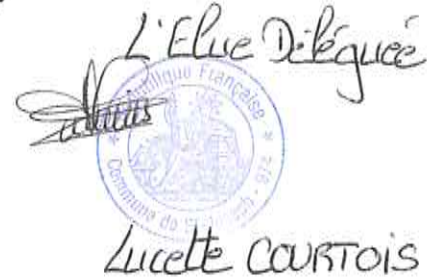 L'Elue Déléguée
République Française
Commune de - 974
Lucette COURTOIS